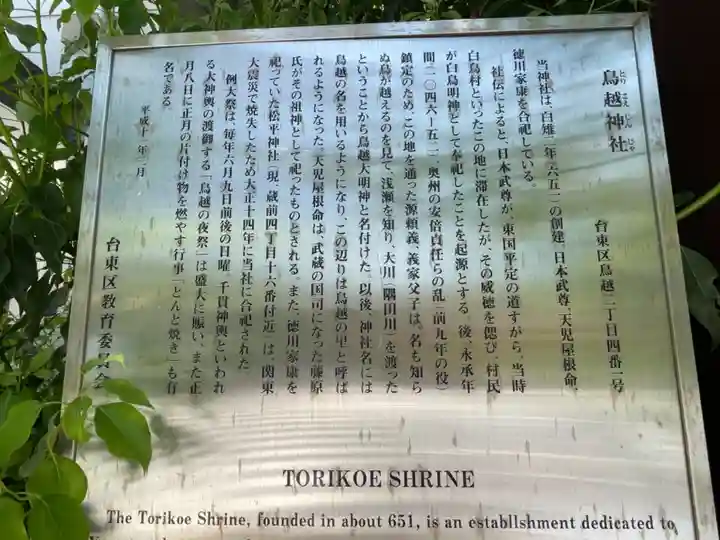 鳥越神社
とりこえじんじゃ
台東区鳥越二丁目四番一号
当神社は、白雉二年(六五一)の創建、日本武尊、天児屋根命、
徳川家康を合祀している。
社伝によると、日本武尊が、東国平定の道すがら、当時
白鳥村といったこの地に滞在したが、その威徳を偲び、村民
が白鳥明神として奉祀したことを起源とする。後、永承年
間(一〇四六〜五二)、奥州の安倍貞任らの乱(前九年の役)
鎮定のため、この地を通った源頼義、義家父子は、名も知ら
ぬ鳥が越えるのを見て、浅瀬を知り、大川(隅田川)を渡った
ということから鳥越大明神と名付けた。以後、神社名には
鳥越の名を用いるようになり、この辺りは鳥越の里と呼ば
れるようになった。天児屋根命は、武蔵の国司になった藤原
氏がその祖神として祀ったものとされる。また、徳川家康を
祀っていた松平神社(現、蔵前四丁目十六番付近)は、関東
大震災で焼失したため大正十四年に当社に合祀された。
例大祭は、毎年六月九日前後の日曜、千貫神輿といわれ
る大神輿の渡御する「鳥越の夜祭」は盛大に賑い、また正
月八日に正月の片付け物を燃やす行事「とんど焼き」も有
名である。
平成十一年三月
台東区教育委員会
TORIKOE SHRINE
The Torikoe Shrine, founded in about 651, is an establlshment dedicated to